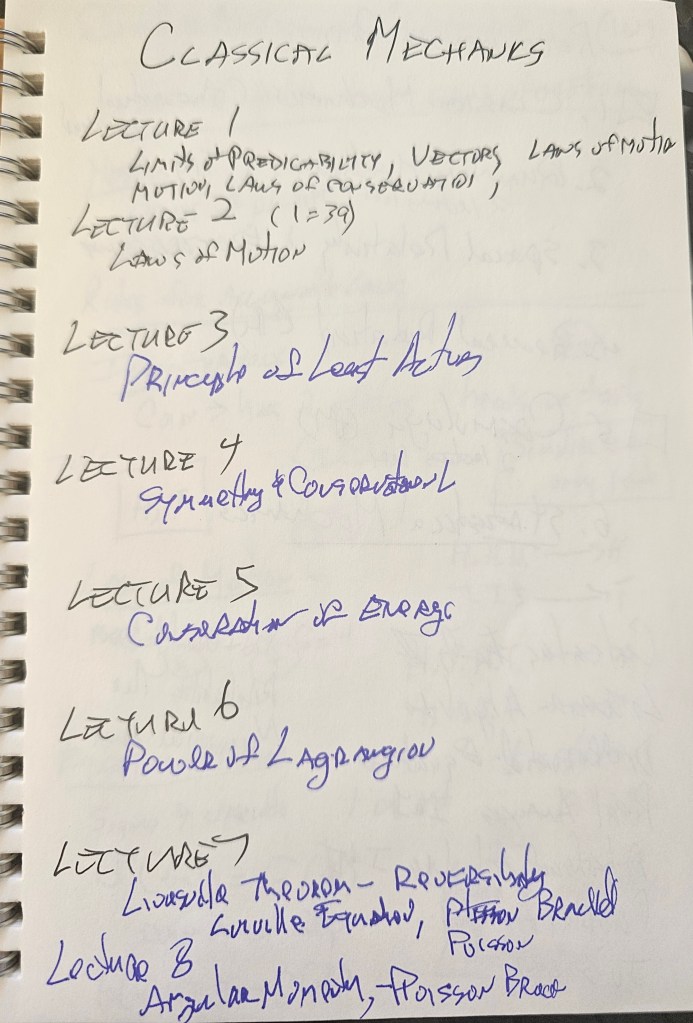 CLASSICAL MECHANKS
LECTURE 1
LIMITS of PREDICABILITY, VECTORS, LAWS of MOTION
MOTION, LAWS OF CONSERVATION,
LECTURE 2 (1=39)
LAWS of MOTION
LECTURE 3
PRINCIPLE of Least Action
LECTURE 4
Symmetry & Conservation L
LECTURE 5
Conservation of ENERGY
LECTURE 6
POWER of LAgrangion
LECTURE 7
Liouville Theorem - REVERSIBILITY
Liuville Equation, Bracket
Poisson
Lecture 8
Angular Momentum, - Poisson Brace